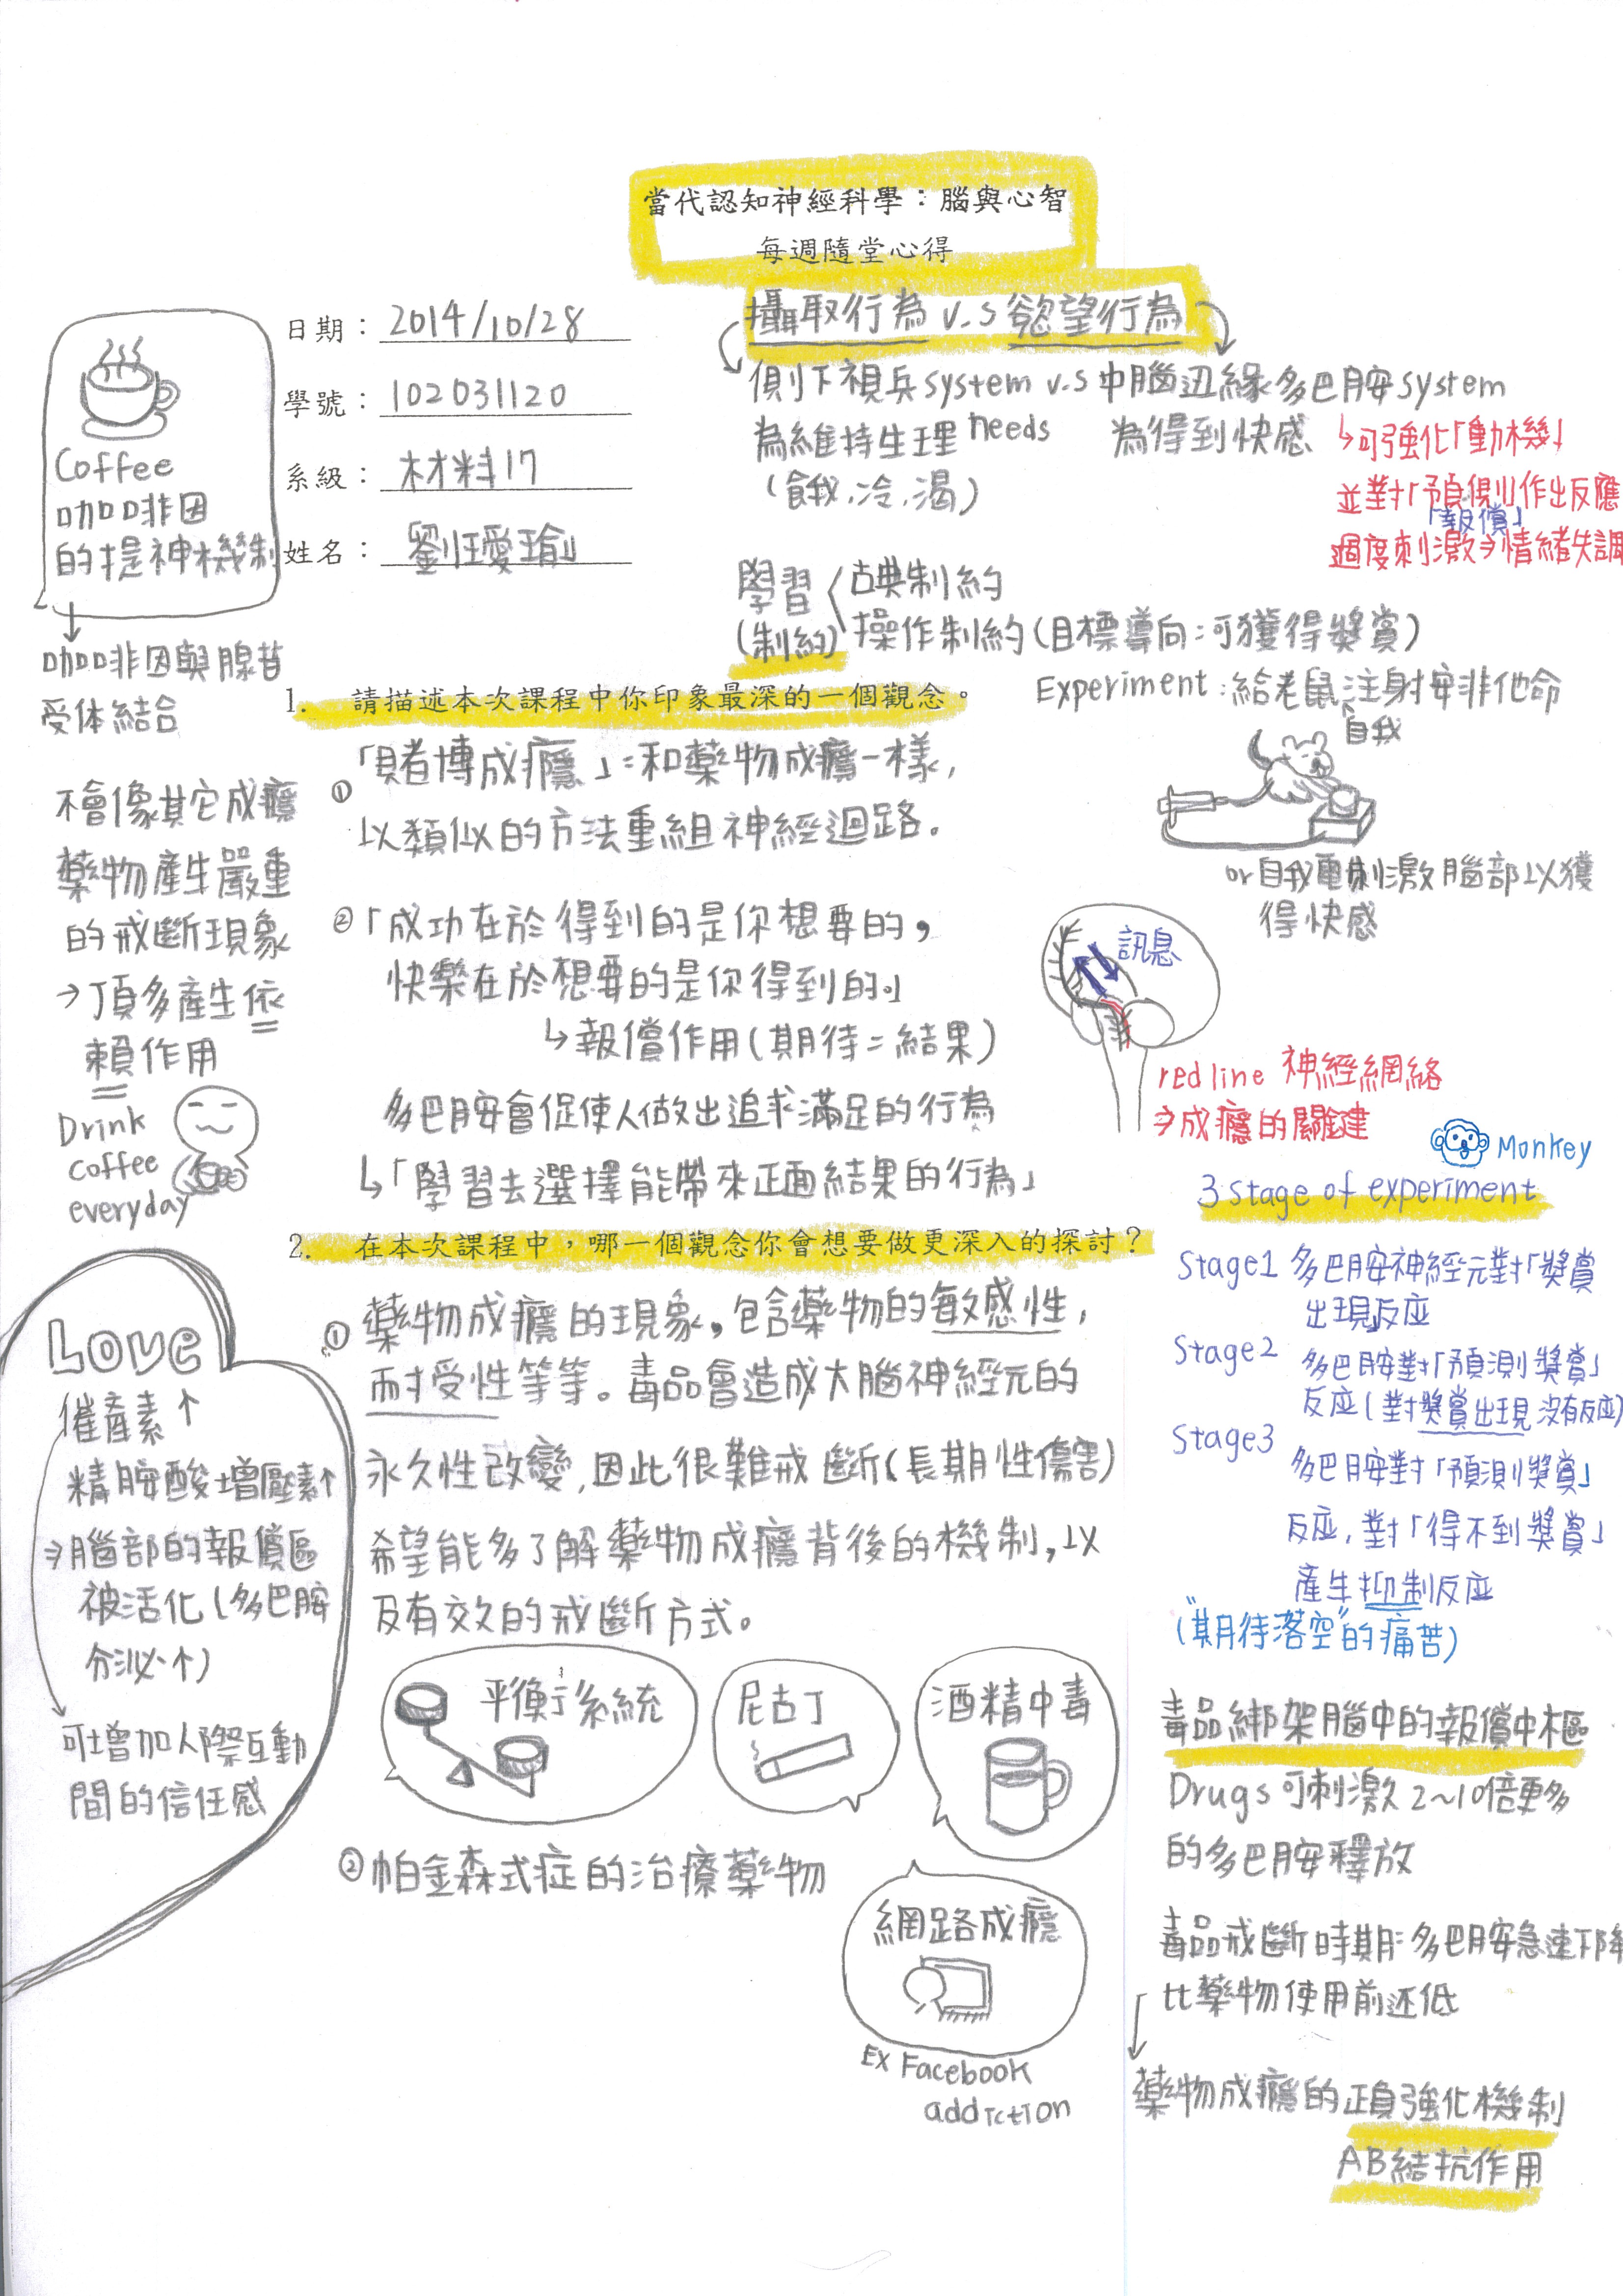 當代認知神經科學：腦與心智
每週隨堂心得
日期：2014/10/28
學號：102031120
系級：材料17
姓名：劉璦瑜
Coffee
咖啡因
的提神機制
咖啡因與腺苷
受体結合
不會像其它成癮
藥物產生嚴重
的戒斷現象
→頂多產生依
賴作用
Drink
coffee
everyday
Love
催產素↑
精胺酸增壓素↑
⇒腦部的報償區
被活化(多巴胺
分泌↑)
可增加人際互動
間的信任感
攝取行為 v.s 慾望行為
側下視丘system v.s 中腦边緣多巴胺system
為維持生理needs
(餓、冷、渴)
為得到快感
↳可強化「動機」
並對「預測」作出反應
「報償」
過度刺激⇒情緒失調
學習
(制約)
古典制約
操作制約(目標導向:可獲得獎賞)
Experiment:給老鼠注射安非他命
自我
or自我電刺激腦部以獲
得快感
訊息
red line 神經網絡
⇒成癮的關鍵
1. 請描述本次課程中你印象最深的一個觀念。
①「賭博成癮」:和藥物成癮一樣,
以類似的方法重組神經迴路。
②「成功在於得到的是你想要的,
快樂在於想要的是你得到的。」
↳報償作用(期待=結果)
多巴胺會促使人做出追求滿足的行為
↳「學習去選擇能帶來正面結果的行為」
2. 在本次課程中，哪一個觀念你會想要做更深入的探討？
①藥物成癮的現象,包含藥物的敏感性,
耐受性等等。毒品會造成大腦神經元的
永久性改變,因此很難戒斷(長期性傷害)
希望能多了解藥物成癮背後的機制,以
及有效的戒斷方式。
平衡系統
尼古丁
酒精中毒
②帕金森式症的治療藥物
網路成癮
Ex Facebook
addiction
Monkey
3 stage of experiment
Stage1 多巴胺神經元對「獎賞
出現」反应
Stage2 多巴胺對「預測獎賞」
反应(對獎賞出現沒有反应)
Stage3
多巴胺對「預測獎賞」
反应,對「得不到獎賞」
產生抑制反应
("期待落空"的痛苦)
毒品綁架腦中的報償中樞
Drugs可刺激2~10倍更多
的多巴胺釋放
毒品戒斷時期:多巴胺急速下降
比藥物使用前还低
藥物成癮的正負強化機制
AB結抗作用